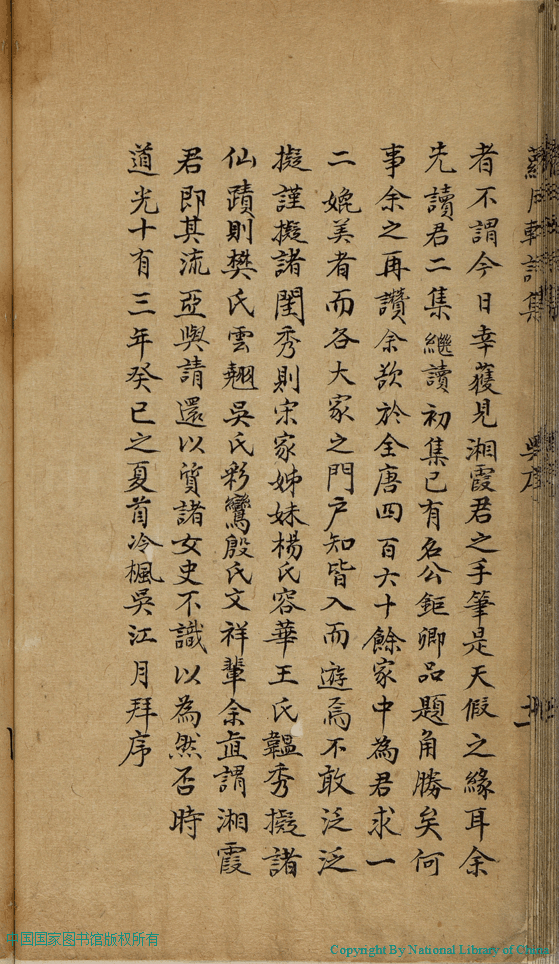 者不謂今日幸獲見湘霞君之手筆是天假之緣耳余
先讀君二集繼讀初集已有名公鉅卿品題角勝矣何
事余之再讚余欲於全唐四百六十餘家中為君求一
二婉美者而各大家之門戶知皆入而遊焉不敢泛泛
擬謹擬諸閨秀則宋家姊妹楊氏容華王氏韞秀擬諸
仙蹟則樊氏雲翹吳氏彩鸞殷氏文祥輩余直謂湘霞
君即其流亞與請還以質諸女史不識以為然否時
道光十有三年癸巳之夏莆冷楓吳江月拜序
中国国家图书馆版权所有
Copyright By National Library of China